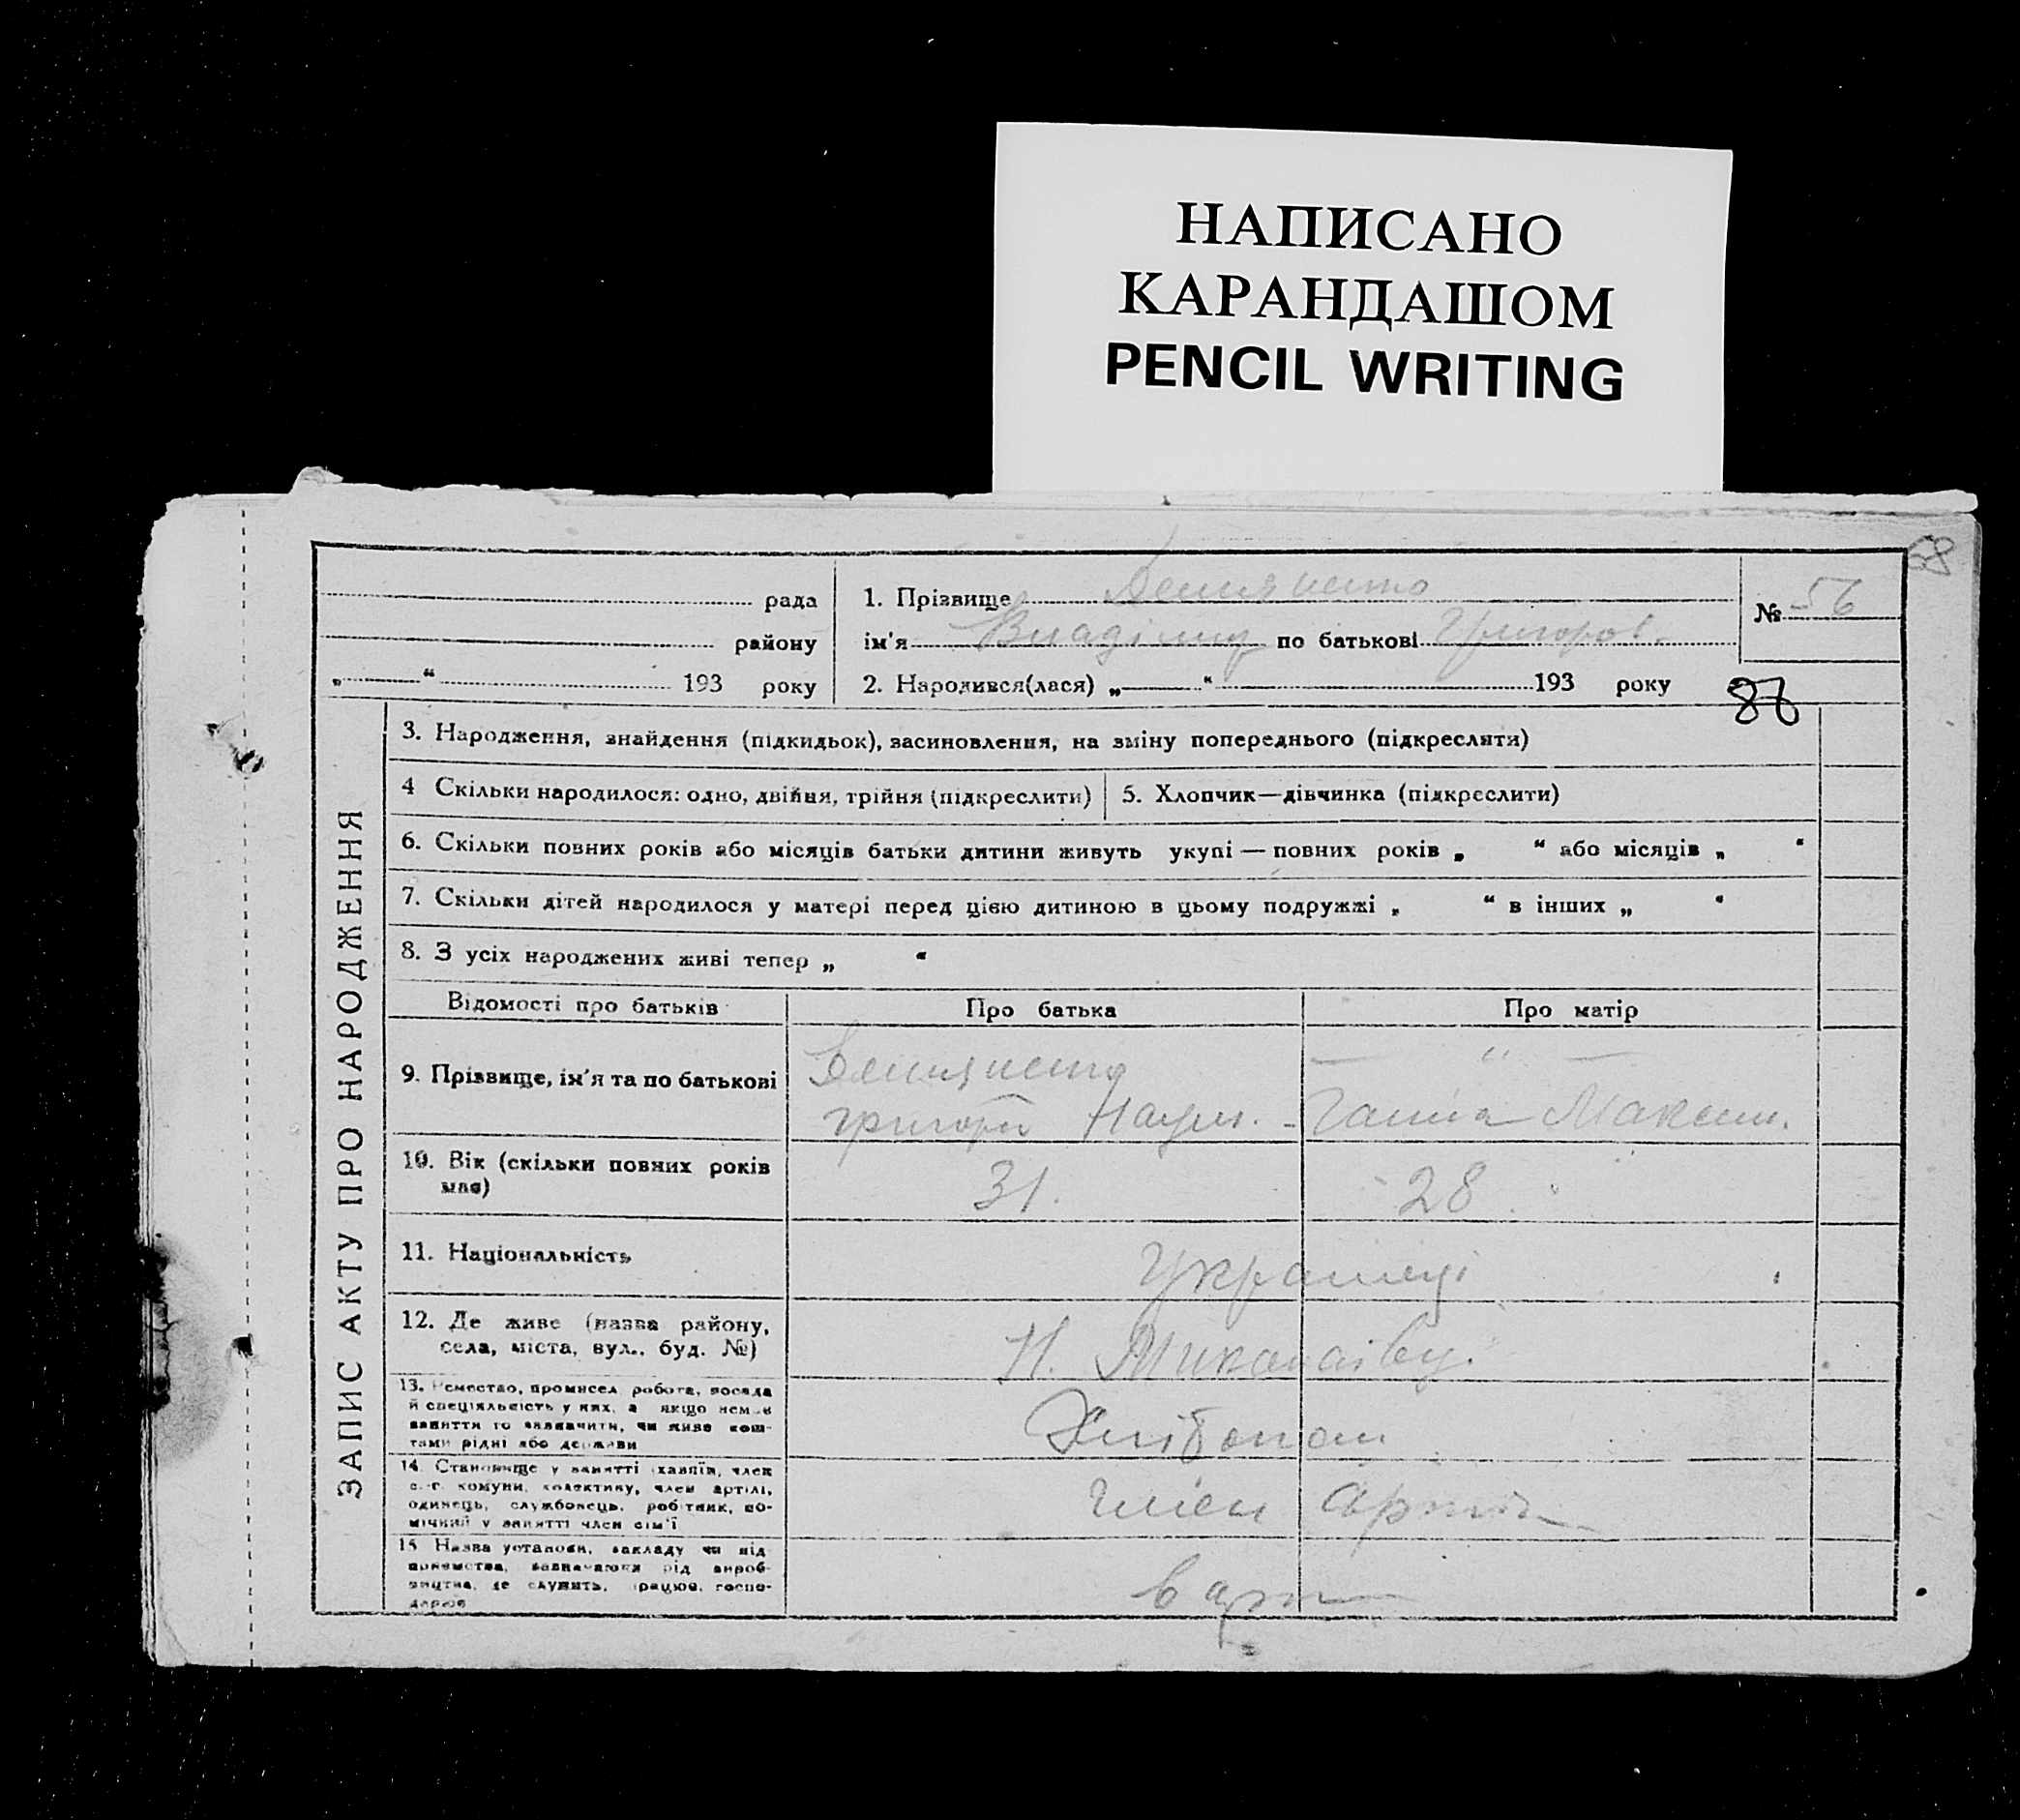 НАПИСАНО
КАРАНДАШОМ
PENCIL WRITING
68
рада
району
„ “ 193 року
1. Прізвище Демяненко
ім'я Владімир по батькові Григоров.
2. Народився(лася) „ “ 193 року
№ 56
86
ЗАПИС АКТУ ПРО НАРОДЖЕННЯ
3. Народження, знайдення (підкидьок), засиновлення, на зміну попереднього (підкреслити)
4 Скільки народилося: одно, двійня, трійня (підкреслити)
5. Хлопчик—дівчинка (підкреслити)
6. Скільки повних років або місяців батьки дитини живуть укупі — повних років „ “ або місяців „ “
7. Скільки дітей народилося у матері перед цією дитиною в цьому подружжі „ “ в інших „ “
8. З усіх народжених живі тепер „ “
Відомості про батьків Про батька Про матір
9. Прізвище, ім'я та по батькові
Демяненко — " —
Григорій Наум. Ганна Максим.
10. Вік (скільки повних років
має)
31. 28.
11. Національність
Українці
12. Де живе (назва району,
села, міста, вул., буд. №)
Н. Миколаївці
13. Ремество, промисел робота, посада
й спеціяльність у них, а якщо немає
заняття то зазначити, чи живе кош-
тами рідні або держави
Хлібороб
14. Становище у занятті (хазяїн, член
с.-г. комуни, колективу, член артілі,
одинець, службовець, робітник, по-
мічний у занятті член сім'ї
член артілі
15 Назва установи, закладу чи під-
приємства, зазначаючи рід вироб-
ництва, де служить, працює, госпо-
дарює
в арт